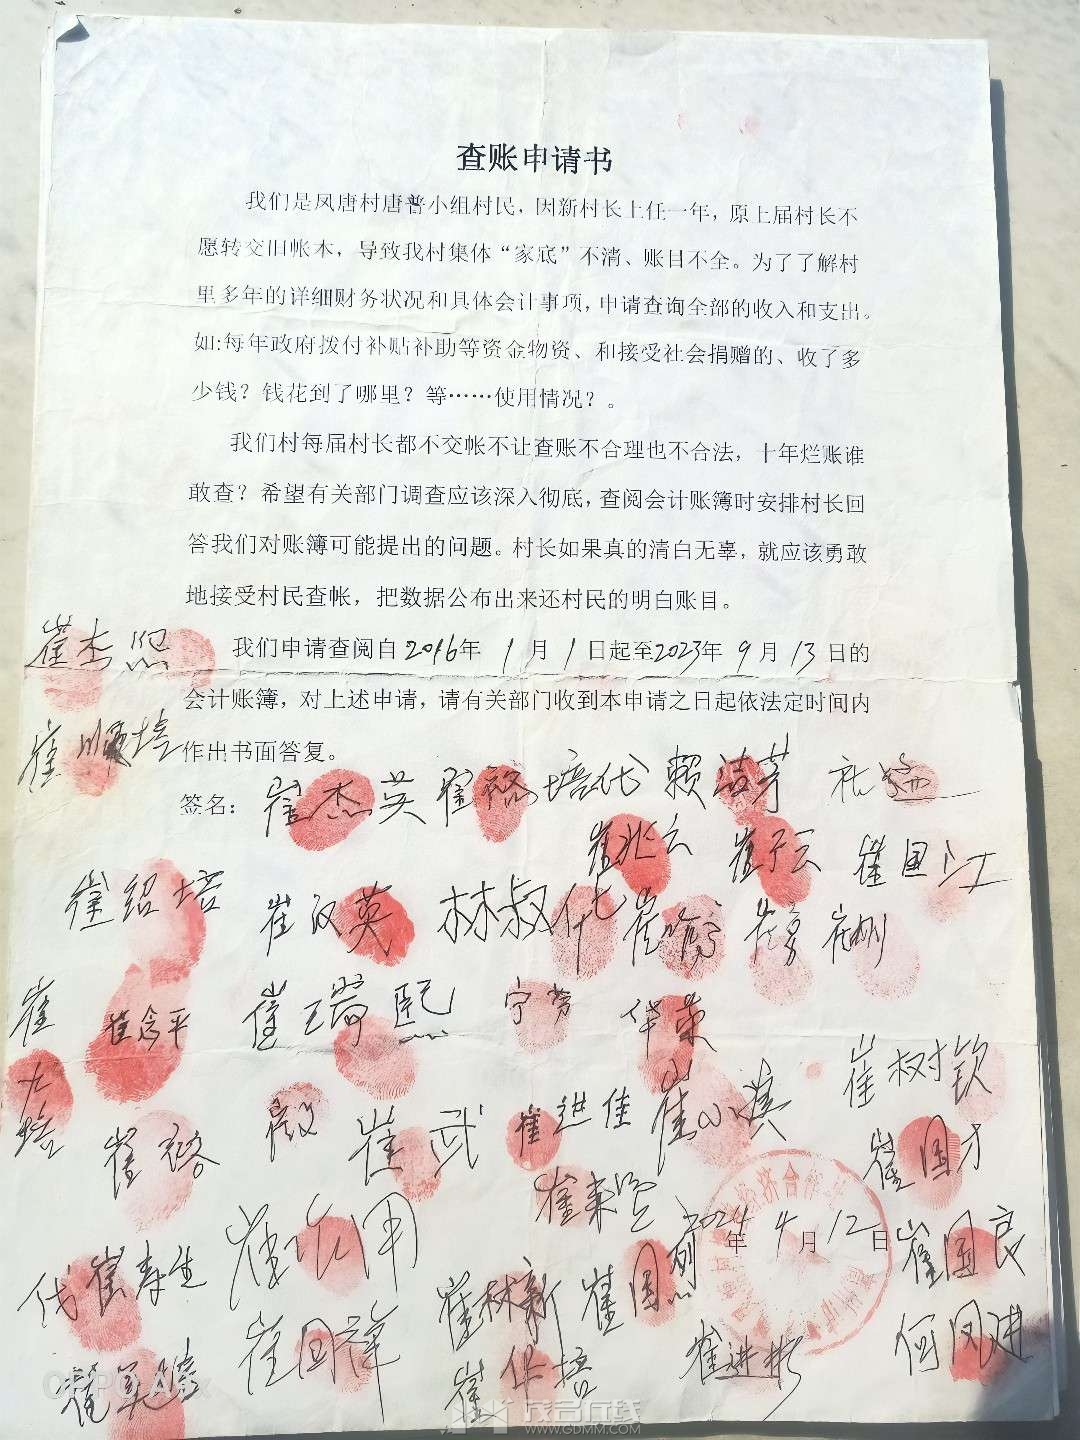 查账申请书
我们是凤唐村唐普小组村民，因新村长上任一年，原上届村长不
愿转交旧帐本，导致我村集体“家底”不清、账目不全。为了了解村
里多年的详细财务状况和具体会计事项，申请查询全部的收入和支出。
如:每年政府拨付补贴补助等资金物资、和接受社会捐赠的、收了多
少钱？钱花到了哪里？等……使用情况？。
我们村每届村长都不交帐不让查账不合理也不合法，十年烂账谁
敢查？希望有关部门调查应该深入彻底，查阅会计账簿时安排村长回
答我们对账簿可能提出的问题。村长如果真的清白无辜，就应该勇敢
地接受村民查帐，把数据公布出来还村民的明白账目。
崔杰熙
我们申请查阅自2016年1月1日起至2023年9月13日的
会计账簿，对上述申请，请有关部门收到本申请之日起依法定时间内
崔顺培
作出书面答复。
签名：
崔杰英
培代
赖洁芳
崔兆云
崔子云
崔国江
崔绍培
崔汉英
林叔代
崔念平
崔瑞熙
宁芳
华荣
崔树钦
崔武
崔进佳
崔小
崔国才
崔来
2024年4月12日
经济合作
崔国良
代崔寿生
崔树新
崔国
崔回
崔华培
崔进彬
何凤进
OPPO A
茂名在线
WWW.GDMM.COM